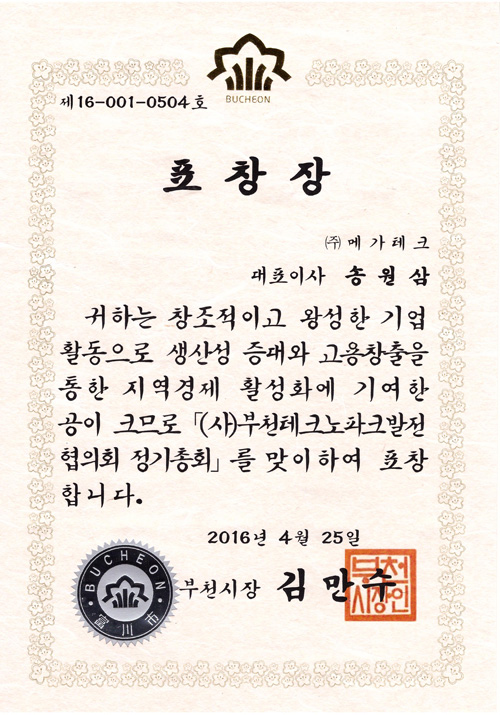 BUCHEON
제16-001-0504호
표창장
㈜ 메가테크
대표이사 송원삼
귀하는 창조적이고 왕성한 기업
활동으로 생산성 증대와 고용창출을
통한 지역경제 활성화에 기여한
공이 크므로 「(사)부천테크노파크발전
협의회 정기총회」를 맞이하여 표창
합니다.
2016년 4월 25일
BUCHEON
富川市
부천시장 김만수
부천
시장인